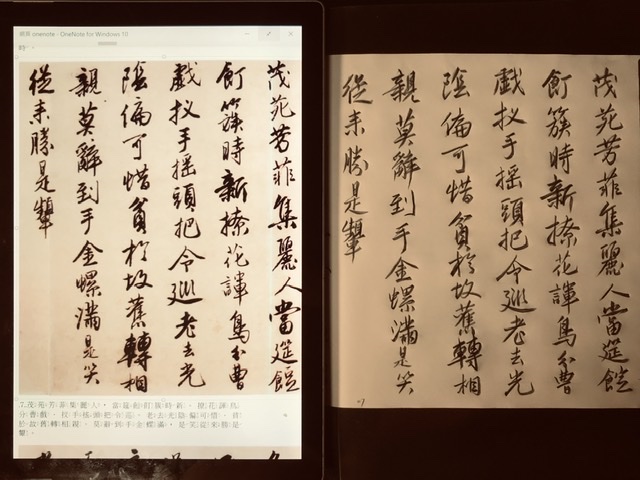 onenote - OneNote for Windows 10
時。
茂苑芳菲集麗人當筵餖
飣簇時新撩花鳥分曹
戲扠手搖頭把令巡老去光
陰偏可惜貧於故舊轉相
親莫辭到手金螺滿是笑
從來勝是顰
7.茂苑芳菲集麗人,當筵餖飣簇時新。撩花鳥
分曹戲,扠手搖頭把令巡。老去光陰偏可惜,貧
於故舊轉相親。莫辭到手金螺滿,是笑從來勝是
顰。
茂苑芳菲集麗人當筵餖
飣簇時新撩花鳥分曹
戲扠手搖頭把令巡老去光
陰偏可惜貧於故舊轉相
親莫辭到手金螺滿是笑
從來勝是顰